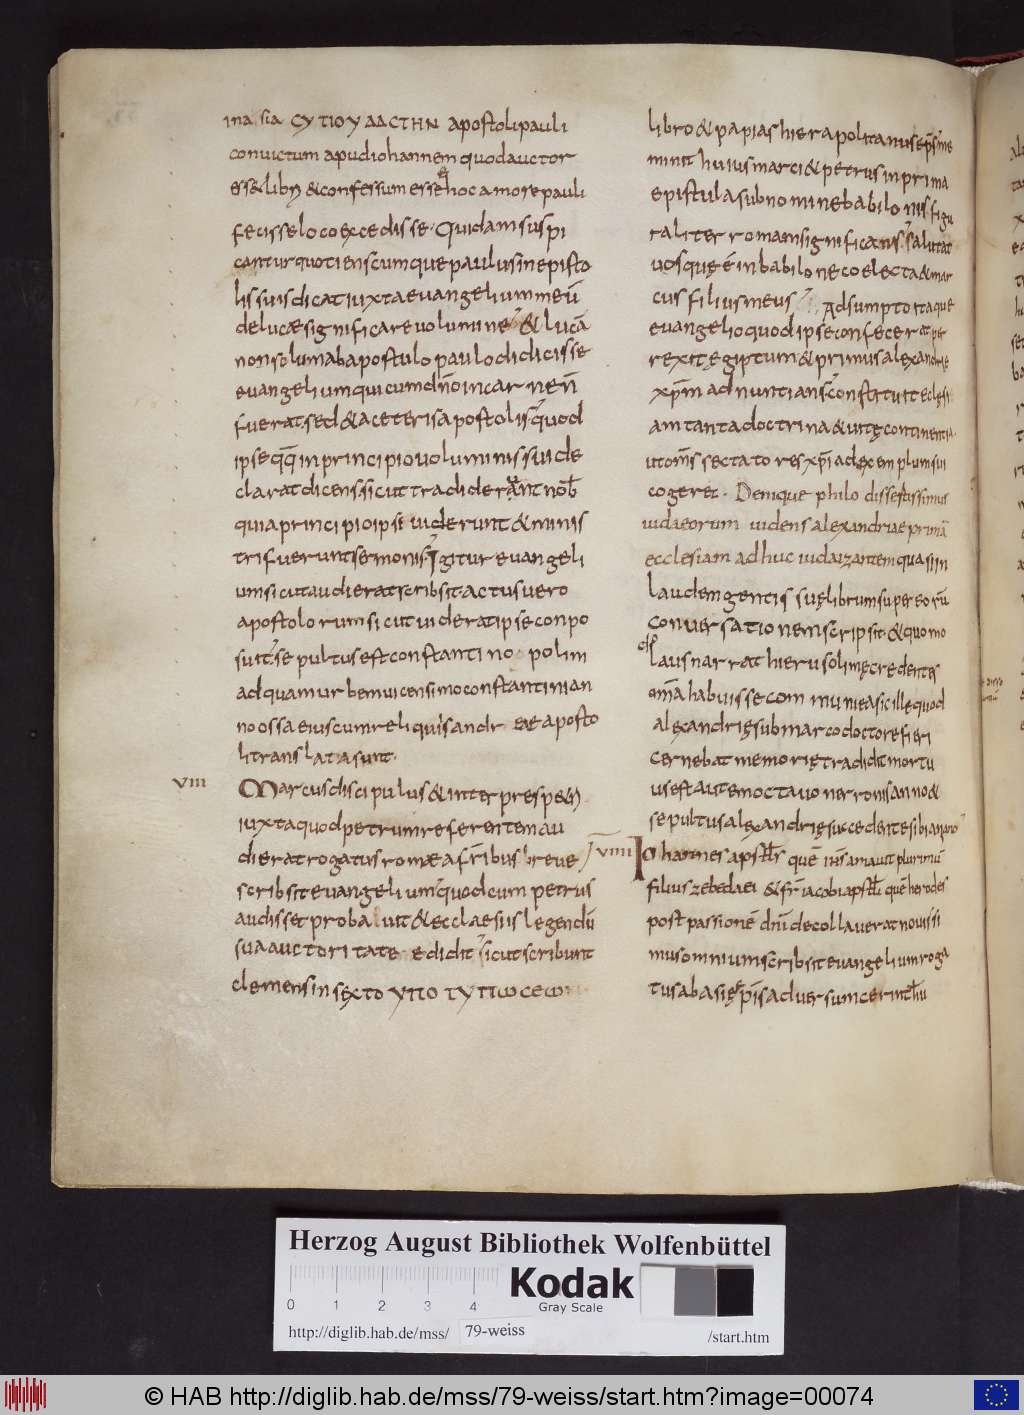 in asia CΠΤΙΟΥΔΑCΤΗΝ apostoli pauli
convictum apud iohannem quod auctor
esset libri & confessum esse hoc amore pauli
fecisse loco excedisse. Quidam suspi
cantur quotienscumque paulus in episto
lis suis dicat iuxta evangelium meū
de lucæ significare volumine & lucā
non solum ab apostulo paulo didicisse
evangelium qui cum dño in carne nō
fuerat sed & a ceteris apostolis quod
ipse q̄q̄ in principio voluminis sui de
clarat dicens sicut tradiderant nob̄
qui a principio ipsi viderunt & minis
tri fuerunt sermonis. Igitur evangeli
um sicut audierat scribsit. actus vero
apostolorum sicut viderat ipse conpo
suit. sepultus est constantinopolim
ad quam urbem vicensimo constantii an
no ossa eius cum reliquiis andreae aposto
li translata sunt.
VIII Marcus discipulus & interpres petri
iuxta quod petrum referentem au
dierat rogatus romæ a fr̄ibus breve
scribsit evangelium. quod cum petrus
audisset probavit & ecclaesiis legendū
sua auctoritate edidit sicut scribunt
clemens in sexto ΥΠΟΤΥΠωCEωN
libro & papias hierapolitanus ep̄s. me
minit huius marci & petrus in prima
epistula sub nomine babilonis. figu
raliter romam significans. salutat
vos quę ē in babilone coelecta & mar
cus filius meus. Adsumpto itaque
evangelio quod ipse confecerat per
rexit ęgiptum & primus alexandrie
xp̄m adnuntians constituit eclesi
am tanta doctrina & vitę continentia
ut om̄s sectatores xp̄i ad exemplum sui
cogeret. Denique philo dissertissimus
iudaeorum videns alexandriae primā
ecclesiam adhuc iudaizantem quasi in
laudem gentis suę librum super eorū
conversationem scripsit. & quomo
do
lausnarrat hierusolimę credentes
om̄a habuisse communia sic ille quod
alexandrię sub marco doctore fieri
cernebat memorię tradidit mortu
us est autem octavo neronis anno &
sepultus alexandrię succedente sibi aniano
VIIII Iohannes apostls quē ih̄s amavit plurimū
filius zebedaei & fr̄ iacobi apstl̄i quē herodes
post passionē dn̄i decollaverat novissi
mus omnium scribsit evangelium roga
tus ab asię ep̄is adversum cerinthū
Herzog August Bibliothek Wolfenbüttel
0 1 2 3 4
Kodak
Gray Scale
http://diglib.hab.de/mss/ 79-weiss /start.htm
© HAB http://diglib.hab.de/mss/79-weiss/start.htm?image=00074